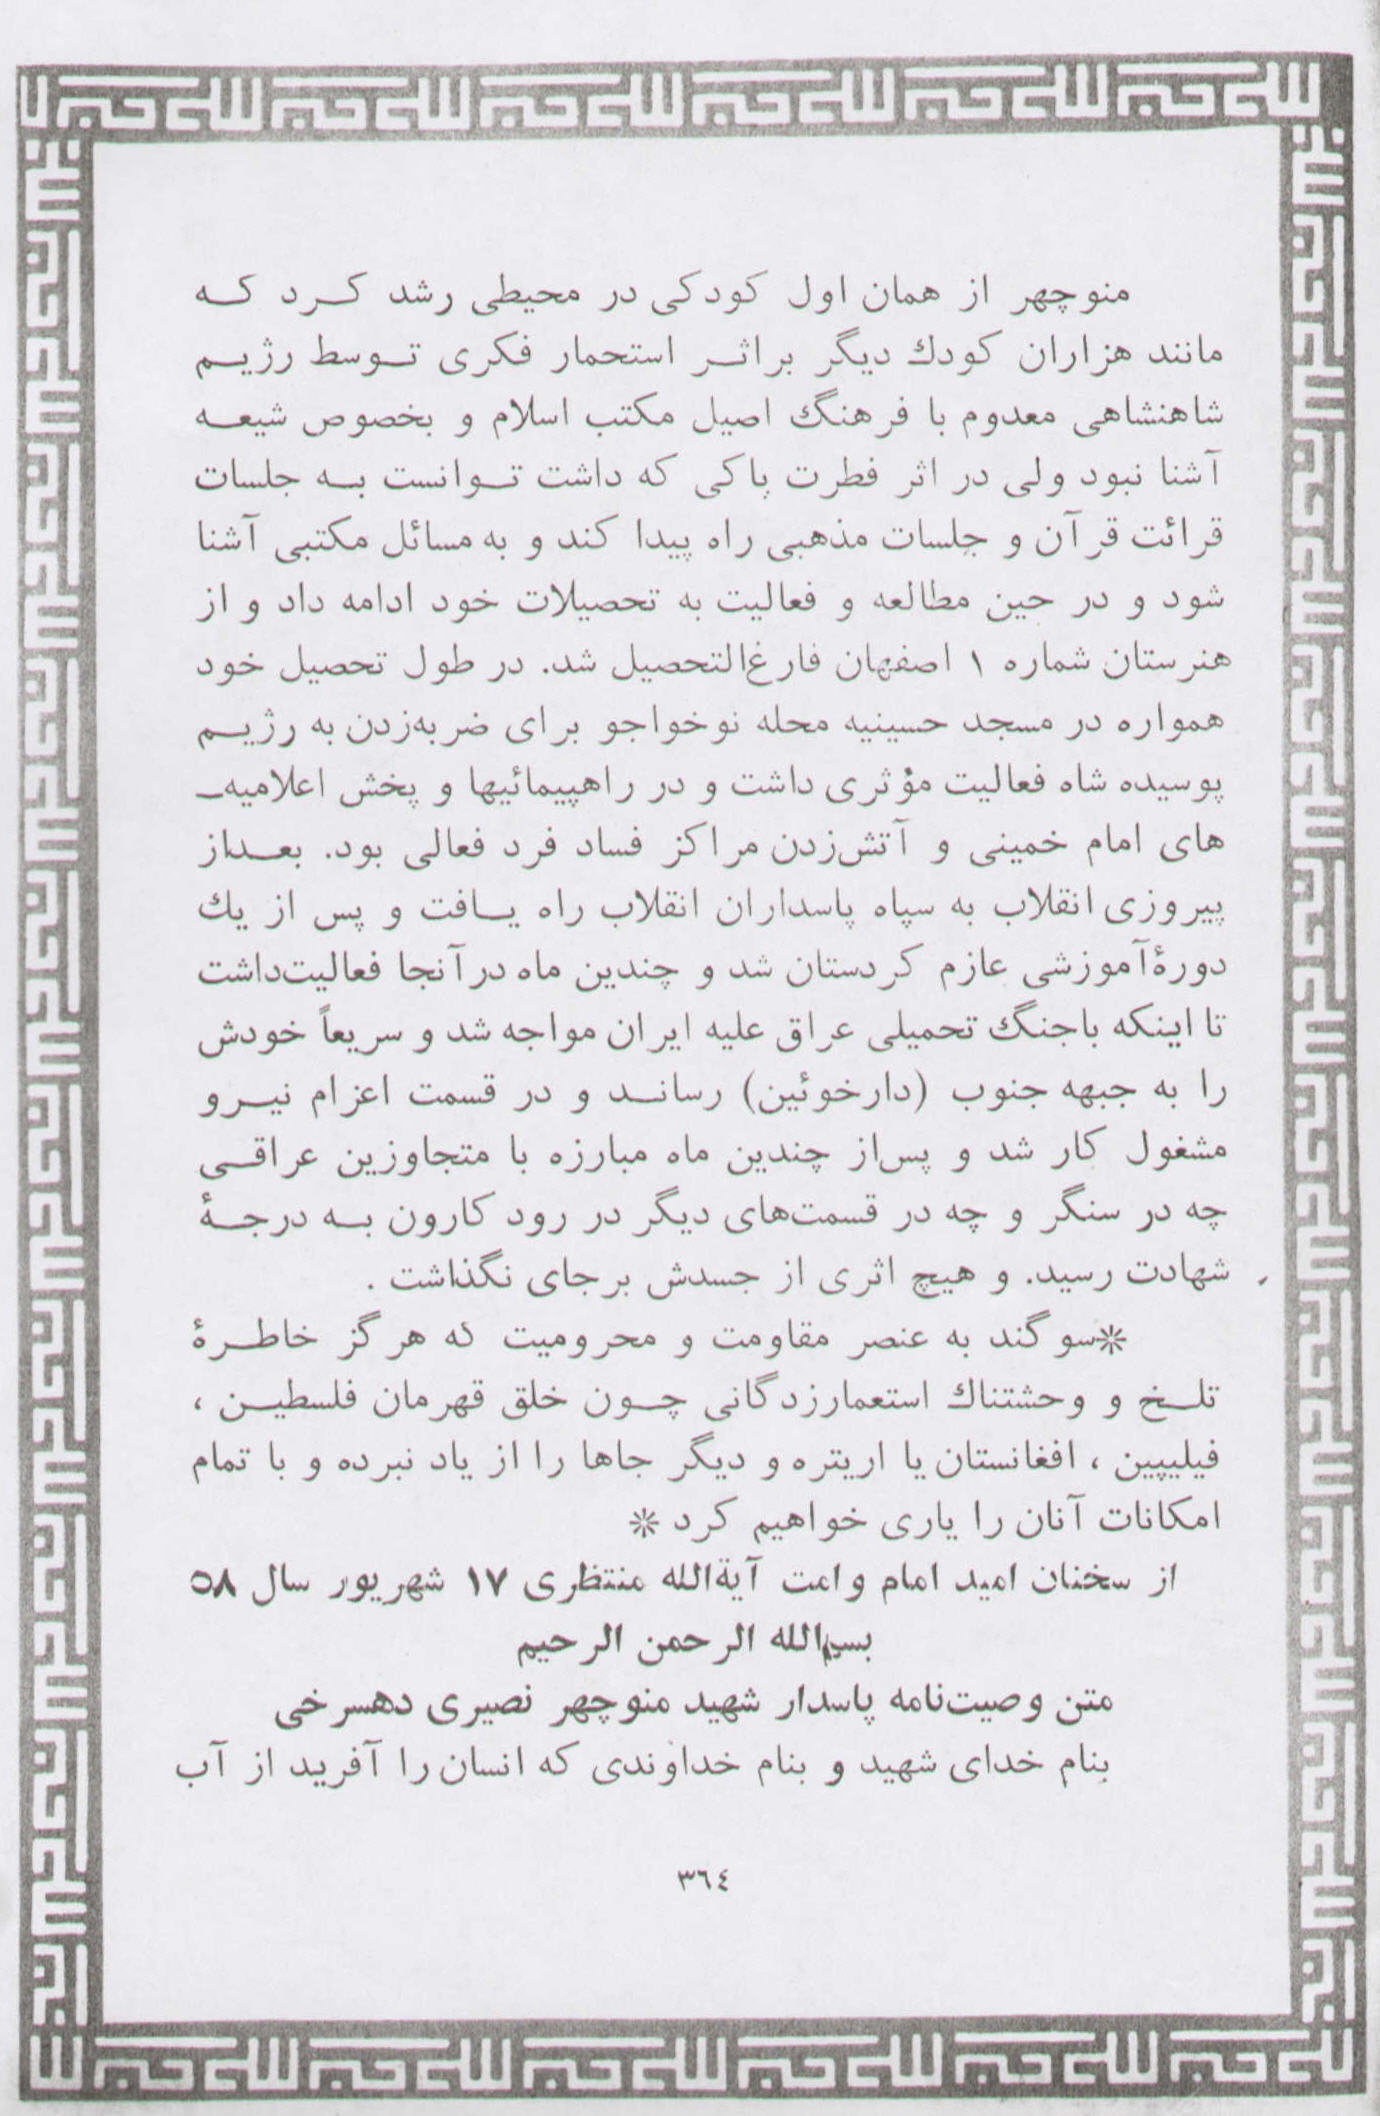 منوچهر از همان اول کودکی در محیطی رشد کرد که
مانند هزاران کودك دیگر براثر استحمار فکری توسط رژیم
شاهنشاهی معدوم با فرهنگ اصیل مکتب اسلام و بخصوص شیعه
آشنا نبود ولی در اثر فطرت پاکی که داشت توانست به جلسات
قرائت قرآن و جلسات مذهبی راه پیدا کند و به مسائل مکتبی آشنا
شود و در حین مطالعه و فعالیت به تحصیلات خود ادامه داد و از
هنرستان شماره ۱ اصفهان فارغ‌التحصیل شد. در طول تحصیل خود
همواره در مسجد حسینیه محله نوخواجو برای ضربه‌زدن به رژیم
پوسیده شاه فعالیت مؤثری داشت و در راهپیمائیها و پخش اعلامیه‌ـ
های امام خمینی و آتش‌زدن مراکز فساد فرد فعالی بود. بعداز
پیروزی انقلاب به سپاه پاسداران انقلاب راه یافت و پس از یك
دورهٔ آموزشی عازم کردستان شد و چندین ماه درآنجا فعالیت‌داشت
تا اینکه باجنگ تحمیلی عراق علیه ایران مواجه شد و سریعاً خودش
را به جبهه جنوب (دارخوئین) رساند و در قسمت اعزام نیرو
مشغول کار شد و پس‌از چندین ماه مبارزه با متجاوزین عراقی
چه در سنگر و چه در قسمت‌های دیگر در رود کارون به درجهٔ
شهادت رسید. و هیچ اثری از جسدش برجای نگذاشت .
*سوگند به عنصر مقاومت و محرومیت که هرگز خاطرهٔ
تلخ و وحشتناك استعمارزدگانی چون خلق قهرمان فلسطین ،
فیلیپین ، افغانستان یا اریتره و دیگر جاها را از یاد نبرده و با تمام
امکانات آنان را یاری خواهیم کرد *
از سخنان امید امام وامت آیةالله منتظری ۱۷ شهریور سال ۵۸
بسم‌الله الرحمن الرحیم
متن وصیت‌نامه پاسدار شهید منوچهر نصیری دهسرخی
بنام خدای شهید و بنام خداوندی که انسان را آفرید از آب
۳٦٤